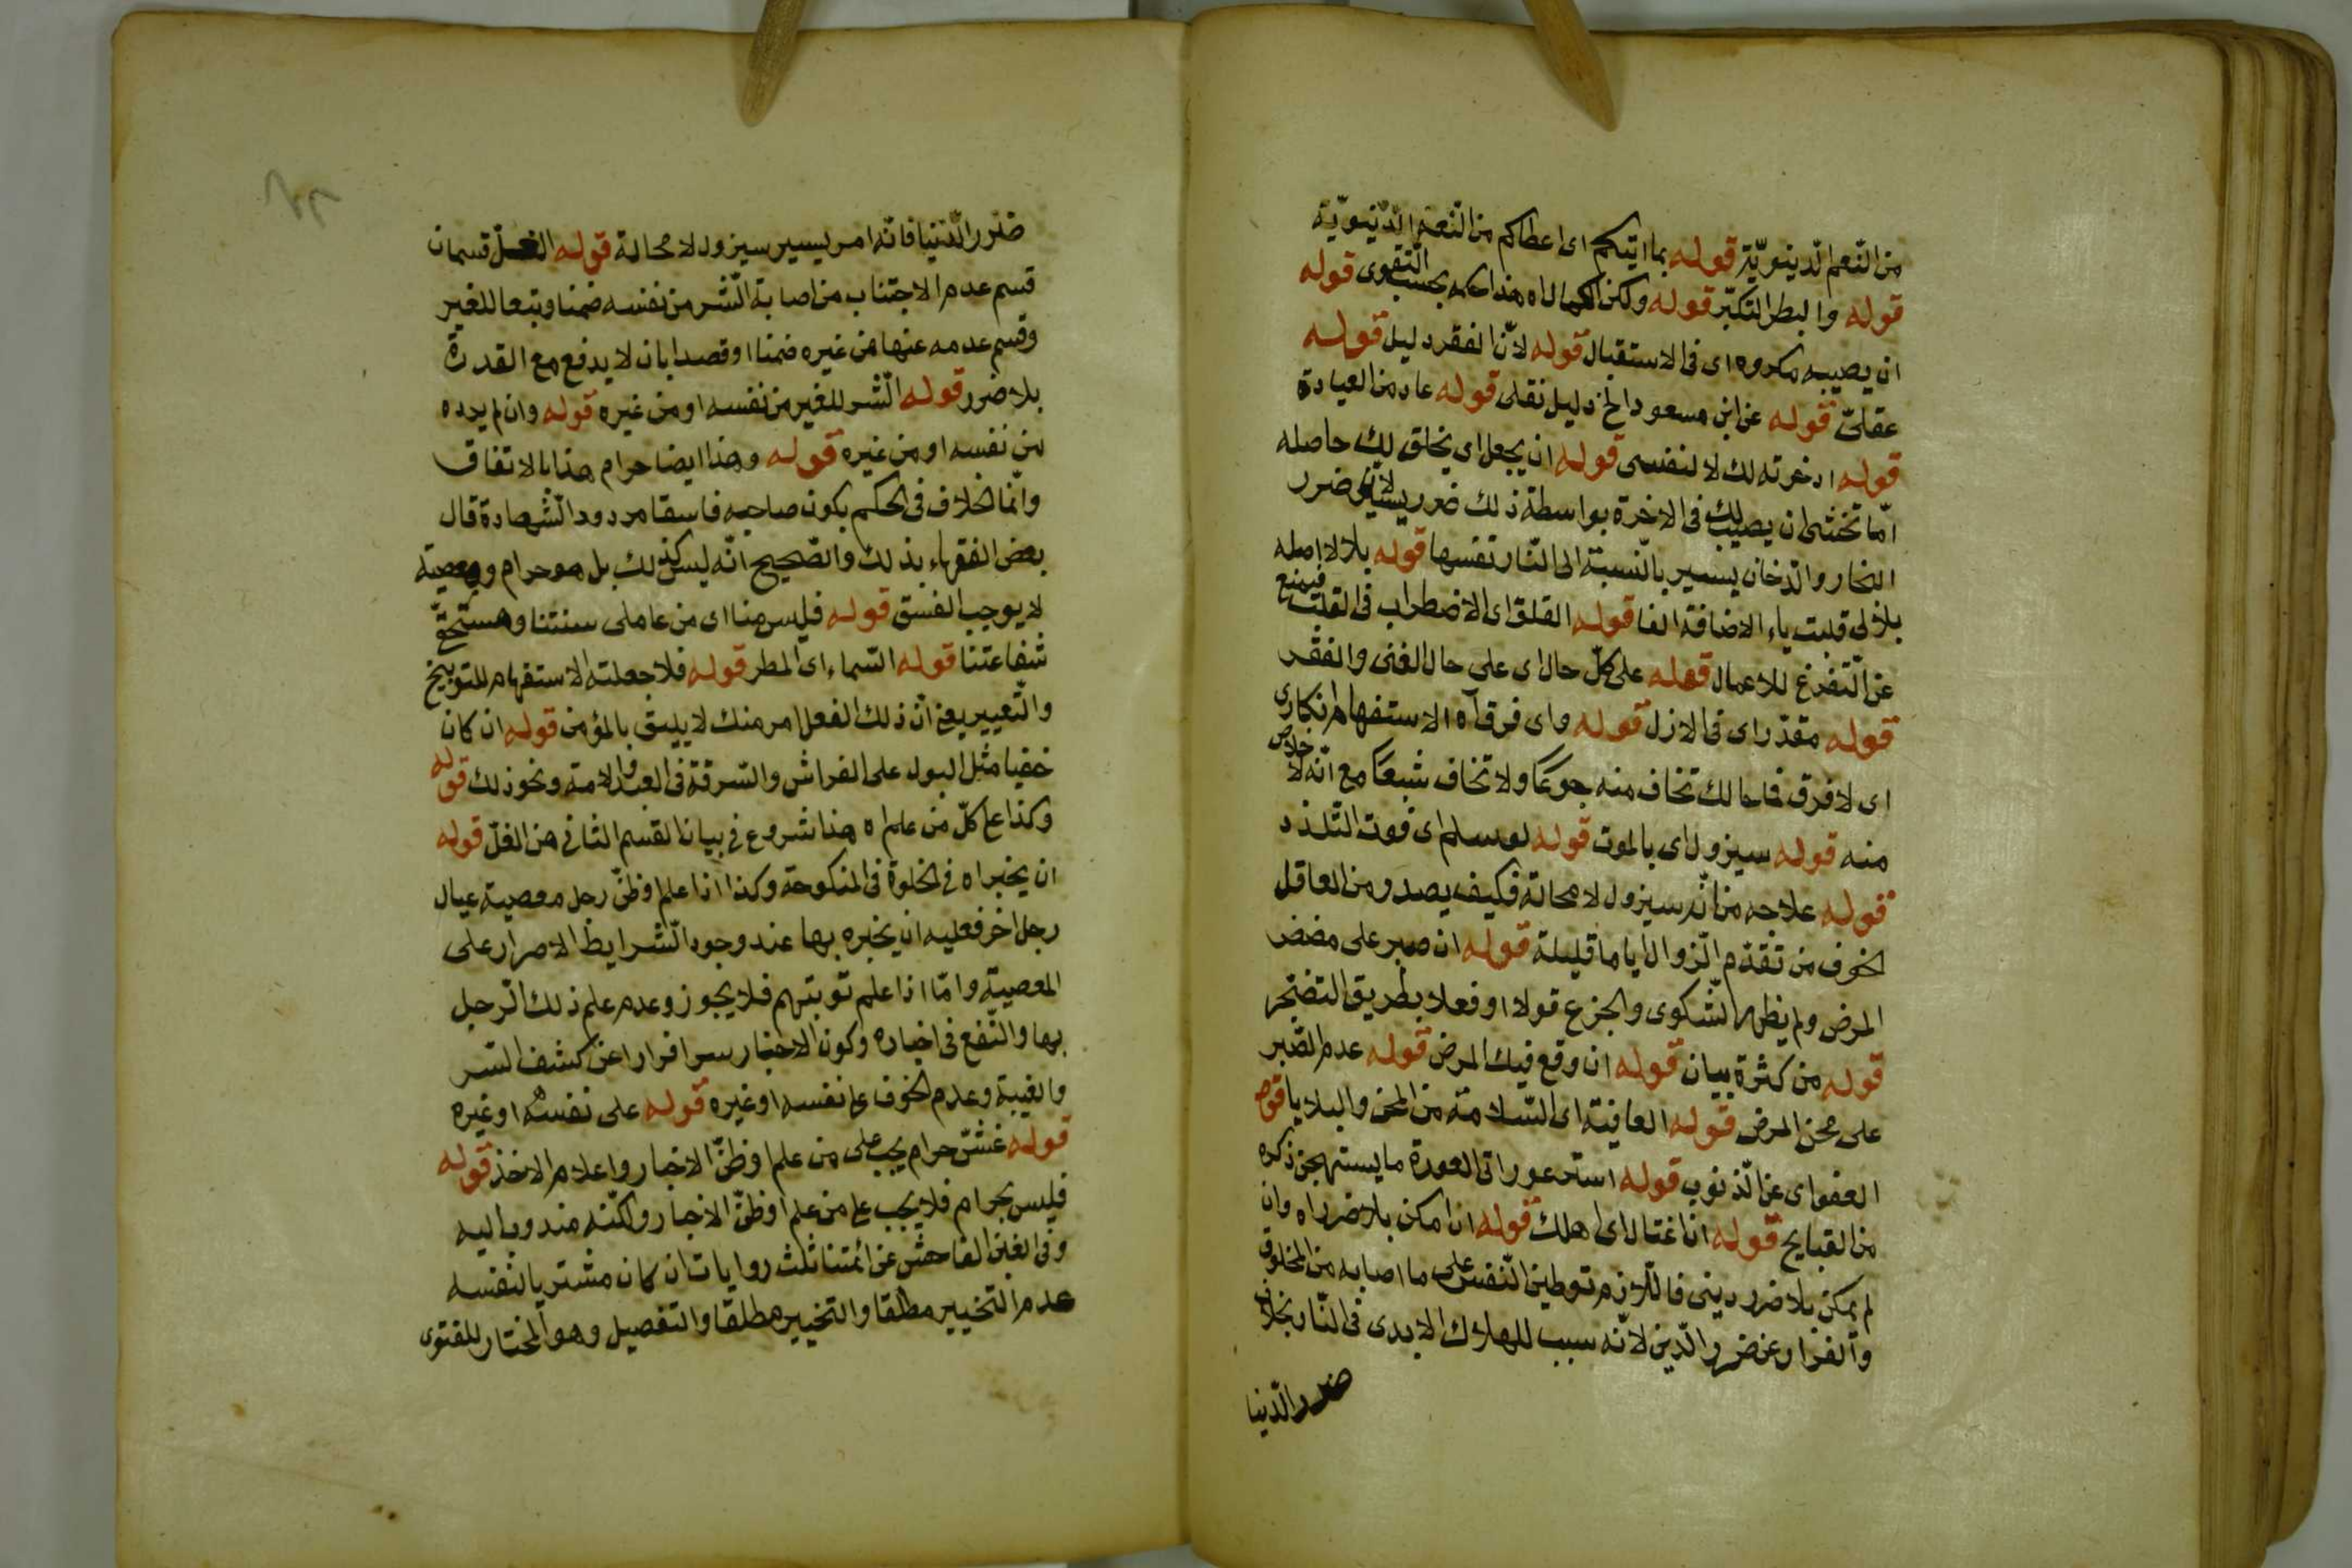 من النّعم الّدينويّة قوله بما اتيكم اى اعطاكم من النّعم الّدينويّة
قوله والبطر التكبّر قوله ولكن الكمال اه هذا بحسب التقوى قوله
ان يصيبه مكروه اى فى الاستقبال قوله لانّ الفقر دليل قوله
عقلىّ قوله عن ابن مسعود الخ دليل نقلى قوله عاد من العيادة
قوله ادخرته لك لا لنفسى قوله ان يجعل اى يخلق لك حاصله
امّا تخشى ان يصيب لك فى الاخرة بواسطة ذلك ضرر يسير لانّ ضرر
البخار والدّخان يسير بالنّسبة الى النّار نفسها قوله بلالا اصله
بلالى قلبت ياء الاضافة الفا قوله القلق اى الاضطراب فى القلب فيمنع
عن التّفرغ للاعمال قوله على كلّ حال اى على حال الغنى والفقر
قوله مقدّر اى فى الازل قوله واى فرق اه الاستفهام انكارى
اى لا فرق فما بالك تخاف منه جوعًا ولا تخاف شبعًا مع انّه لا خلاص
منه قوله سيزول اى بالموت قوله لو سلم اى فوت التّلذذ
قوله علاجه من انّه سيزول لا محالة فكيف يصدر من العاقل
الخوف من تقدّم الزّوال اياما قليلة قوله ان صبر على مضض
المرض ولم يظهر الشّكوى والجزع قولا او فعلا بطريق التضجر
قوله من كثرة بيان قوله ان وقع فيك المرض قوله عدم الصّبر
على محن المرض قوله العافية اى السّلامة من المحن والبلايا قوله
العفو اى عن الذّنوب قوله استر عوراتى العورة ما يستهجن ذكره
من القبايح قوله ان اغتال اى اهلك قوله ان امكن بلا ضرر اه وان
لم يمكن بلا ضرر دينى فاللّازم توطين النّفس على ما اصابه من المخلوق
والفرار عن ضرر الدّين لانّه سبب للهلاك الابدى فى النّار بخلاف
ضرر الدّنيا
ضرر الدّنيا فانّه امر يسير سيزول لا محالة قوله الغلّ قسمان
قسم عدم الاجتناب من اصابة الشّر من نفسه ضمنا وتبعا للغير
وقسم عدمه عنها من غيره ضمنا او قصدا بان لا يدفع مع القدرة
بلا ضرر قوله الشّر للغير من نفسه او من غيره قوله وان لم يرده
من نفسه او من غيره قوله وهذا ايضا حرام هذا بالاتفاق
وانّما الخلاف فى الحكم بكون صاحبه فاسقا مردود الشّهادة قال
بعض الفقهاء بذلك والصّحيح انّه ليس كذلك بل هو حرام ومعصية
لا يوجب الفسق قوله فليس منا اى من عاملى سنتنا ومستحقّ
شفاعتنا قوله السّماء اى المطر قوله فلا جعلته الاستفهام للتوبيخ
والتّعيير يعنى انّ ذلك الفعل امر منك لا يليق بالمؤمن قوله ان كان
خفيا مثل البول على الفراش والسّرقة فى العبد والامة ونحو ذلك قوله
وكذا على كلّ من علم اه هذا شروع فى بيان القسم الثانى من الغلّ قوله
ان يخبر اه فى الخلوة فى المنكوحة وكذا اذا علم او ظنّ رجل معصية عيال
رجل اخر فعليه ان يخبره بها عند وجود الشّرايط الاصرار على
المعصية وامّا اذا علم توبتهم فلا يجوز وعدم علم ذلك الرّجل
بها والنّفع فى اخباره وكون الاخبار سرا فرارا عن كشف السّر
والغيبة وعدم الخوف على نفسه او غيره قوله على نفسه او غيره
قوله غشّ حرام يجب على من علم او ظنّ الاخبار واعلام الاخذ قوله
فليس بحرام فلا يجب على من علم او ظنّ الاخبار ولكنّه مندوب اليه
وفى الغبن الفاحش عن ائمتنا ثلث روايات ان كان مشتريا لنفسه
عدم التخيير مطلقا والتخيير مطلقا والتفصيل وهو المختار للفتوى